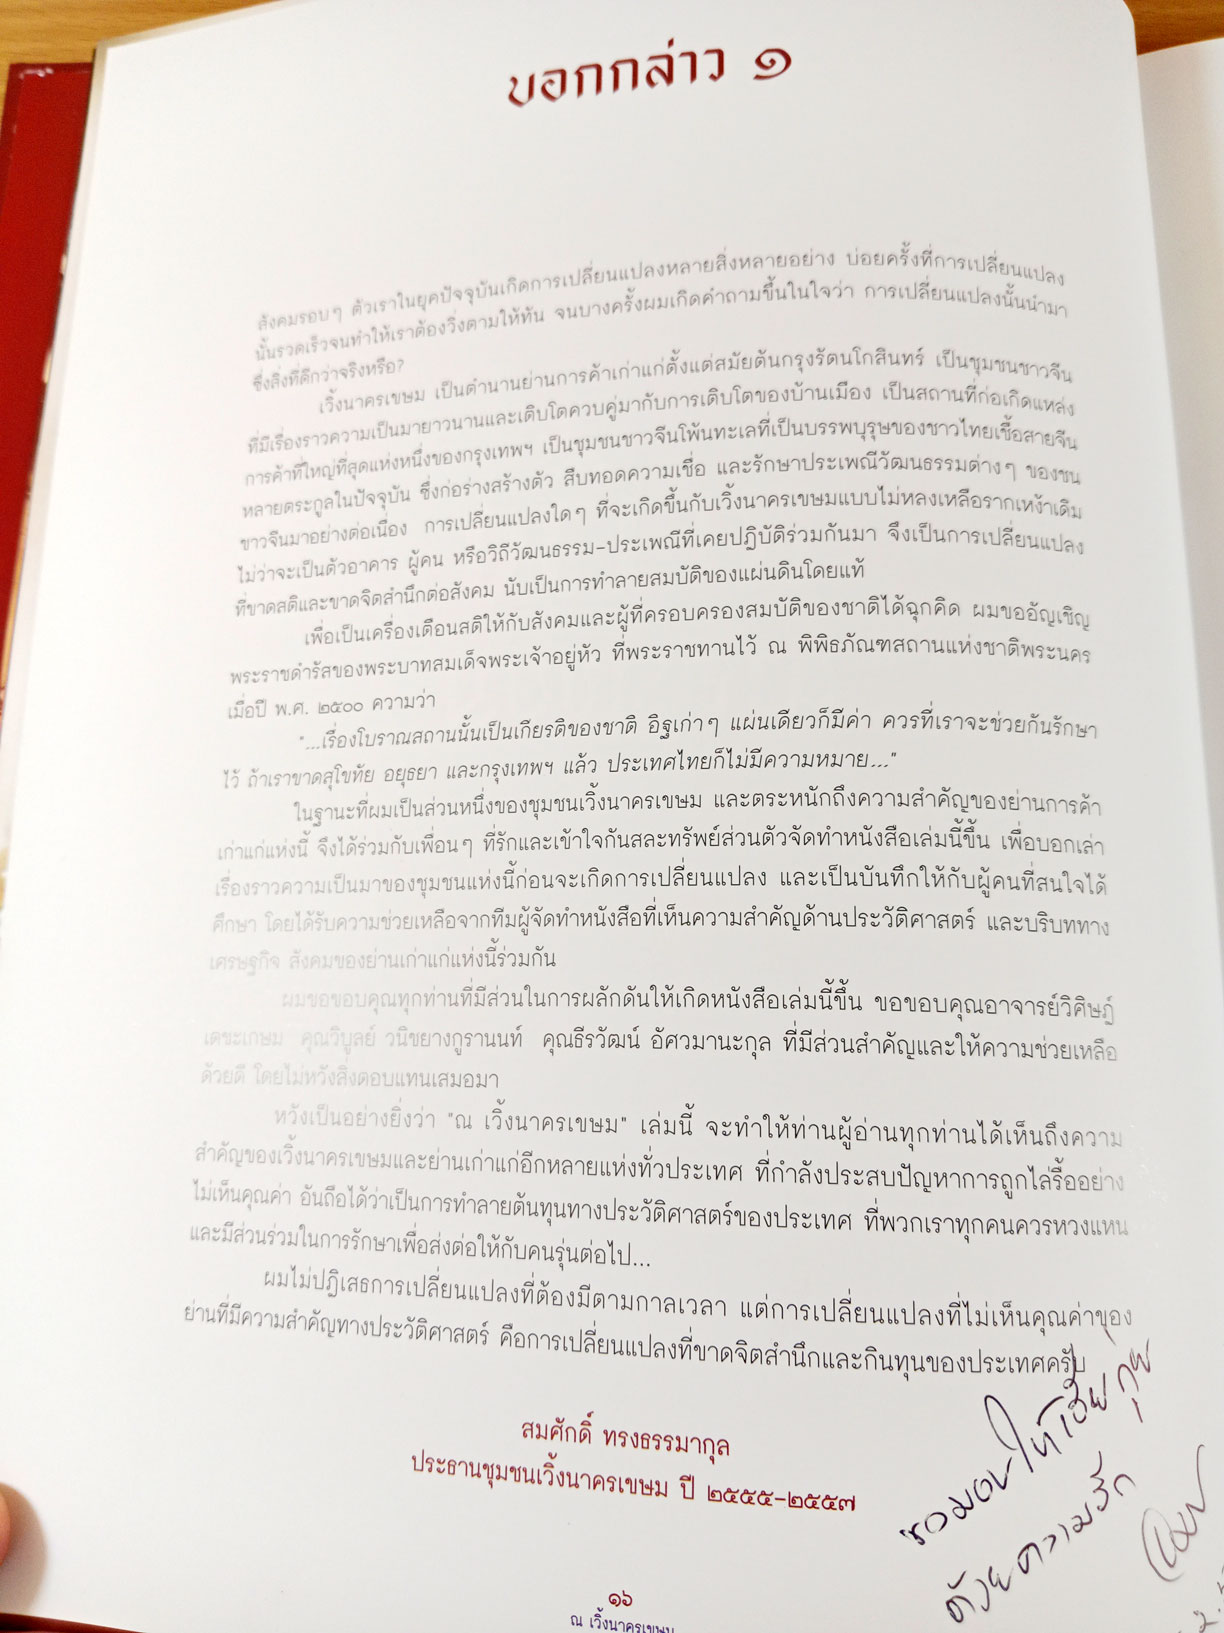 บอกกล่าว ๑
สังคมรอบๆ ตัวเราในยุคปัจจุบันเกิดการเปลี่ยนแปลงหลายสิ่งหลายอย่าง บ่อยครั้งที่การเปลี่ยนแปลง
นั้นรวดเร็วจนทำให้เราต้องวิ่งตามให้ทัน จนบางครั้งผมเกิดคำถามขึ้นในใจว่า การเปลี่ยนแปลงนั้นนำมา
ซึ่งสิ่งที่ดีกว่าจริงหรือ?
เวิ้งนาครเขษม เป็นตำนานย่านการค้าเก่าแก่ตั้งแต่สมัยต้นกรุงรัตนโกสินทร์ เป็นชุมชนชาวจีน
ที่มีเรื่องราวความเป็นมายาวนานและเติบโตควบคู่มากับการเติบโตของบ้านเมือง เป็นสถานที่ก่อเกิดแหล่ง
การค้าที่ใหญ่ที่สุดแห่งหนึ่งของกรุงเทพฯ เป็นชุมชนชาวจีนโพ้นทะเลที่เป็นบรรพบุรุษของชาวไทยเชื้อสายจีน
หลายตระกูลในปัจจุบัน ซึ่งก่อร่างสร้างตัว สืบทอดความเชื่อ และรักษาประเพณีวัฒนธรรมต่างๆ ของชน
ชาวจีนมาอย่างต่อเนื่อง การเปลี่ยนแปลงใดๆ ที่จะเกิดขึ้นกับเวิ้งนาครเขษมแบบไม่หลงเหลือรากเหง้าเดิม
ไม่ว่าจะเป็นตัวอาคาร ผู้คน หรือวิถีวัฒนธรรม-ประเพณีที่เคยปฏิบัติร่วมกันมา จึงเป็นการเปลี่ยนแปลง
ที่ขาดสติและขาดจิตสำนึกต่อสังคม นับเป็นการทำลายสมบัติของแผ่นดินโดยแท้
เพื่อเป็นเครื่องเตือนสติให้กับสังคมและผู้ที่ครอบครองสมบัติของชาติได้ฉุกคิด ผมขออัญเชิญ
พระราชดำรัสของพระบาทสมเด็จพระเจ้าอยู่หัว ที่พระราชทานไว้ ณ พิพิธภัณฑสถานแห่งชาติพระนคร
เมื่อปี พ.ศ. ๒๕๐๐ ความว่า
"...เรื่องโบราณสถานนั้นเป็นเกียรติของชาติ อิฐเก่าๆ แผ่นเดียวก็มีค่า ควรที่เราจะช่วยกันรักษา
ไว้ ถ้าเราขาดสุโขทัย อยุธยา และกรุงเทพฯ แล้ว ประเทศไทยก็ไม่มีความหมาย..."
ในฐานะที่ผมเป็นส่วนหนึ่งของชุมชนเวิ้งนาครเขษม และตระหนักถึงความสำคัญของย่านการค้า
เก่าแก่แห่งนี้ จึงได้ร่วมกับเพื่อนๆ ที่รักและเข้าใจกันสละทรัพย์ส่วนตัวจัดทำหนังสือเล่มนี้ขึ้น เพื่อบอกเล่า
เรื่องราวความเป็นมาของชุมชนแห่งนี้ก่อนจะเกิดการเปลี่ยนแปลง และเป็นบันทึกให้กับผู้คนที่สนใจได้
ศึกษา โดยได้รับความช่วยเหลือจากทีมผู้จัดทำหนังสือที่เห็นความสำคัญด้านประวัติศาสตร์ และบริบททาง
เศรษฐกิจ สังคมของย่านเก่าแก่แห่งนี้ร่วมกัน
ผมขอขอบคุณทุกท่านที่มีส่วนในการผลักดันให้เกิดหนังสือเล่มนี้ขึ้น ขอขอบคุณอาจารย์วิศิษฎ์
เตชะเกษม คุณวิบูลย์ วนิชยางกูรานนท์ คุณธีรวัฒน์ อัศวมานะกุล ที่มีส่วนสำคัญและให้ความช่วยเหลือ
ด้วยดี โดยไม่หวังสิ่งตอบแทนเสมอมา
หวังเป็นอย่างยิ่งว่า "ณ เวิ้งนาครเขษม" เล่มนี้ จะทำให้ท่านผู้อ่านทุกท่านได้เห็นถึงความ
สำคัญของเวิ้งนาครเขษมและย่านเก่าแก่อีกหลายแห่งทั่วประเทศ ที่กำลังประสบปัญหาการถูกไล่รื้ออย่าง
ไม่เห็นคุณค่า อันถือได้ว่าเป็นการทำลายต้นทุนทางประวัติศาสตร์ของประเทศ ที่พวกเราทุกคนควรหวงแหน
และมีส่วนร่วมในการรักษาเพื่อส่งต่อให้กับคนรุ่นต่อไป...
ผมไม่ปฏิเสธการเปลี่ยนแปลงที่ต้องมีตามกาลเวลา แต่การเปลี่ยนแปลงที่ไม่เห็นคุณค่าของ
ย่านที่มีความสำคัญทางประวัติศาสตร์ คือการเปลี่ยนแปลงที่ขาดจิตสำนึกและกินทุนของประเทศครับ
สมศักดิ์ ทรงธรรมากุล
ประธานชุมชนเวิ้งนาครเขษม ปี ๒๕๕๕-๒๕๕๗
ขอมอบให้เฮีย
ด้วยความรัก
๑๖
ณ เวิ้งนาครเขษม